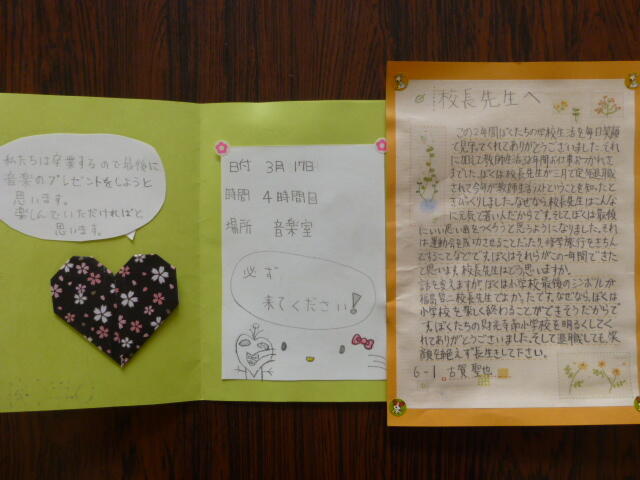 私たちは卒業するので最後に
音楽のプレゼントをしようと
思います。
楽しんでいただければと
思います。
日付 3月17日
時間 4時間目
場所 音楽室
必ず
来てください!
校長先生へ
この2年間ぼくたちの学校生活を毎日笑顔
で見守ってくれてありがとうございました。それ
に加えて教師生活32年間お仕事おつかれさ
までした。ぼくは校長先生が三月で定年退職
されて今年が教師生活ラストということを知ったとき
びっくりしました。なぜなら校長先生はこんな
に元気で若いんだからです。そしてぼくは最後
にいい思い出をつくろうと思うようになりました。それ
は運動会を成功させることだったり、修学旅行をきちん
とすることなどです。ぼくはそれらがこの一年間できた
と思います。校長先生はどう思いますか。
話を変えますが、ぼくは小学校最後のシンボルが
校長先生でよかったです。なぜなら、ぼくは
小学校を楽しく終わることができそうだからで
す。ぼくたちの
小学校を明るくしてく
れてありがとうございました。そして退職しても、笑
顔を絶えず長生きして下さい。
6-1 古賀聖也